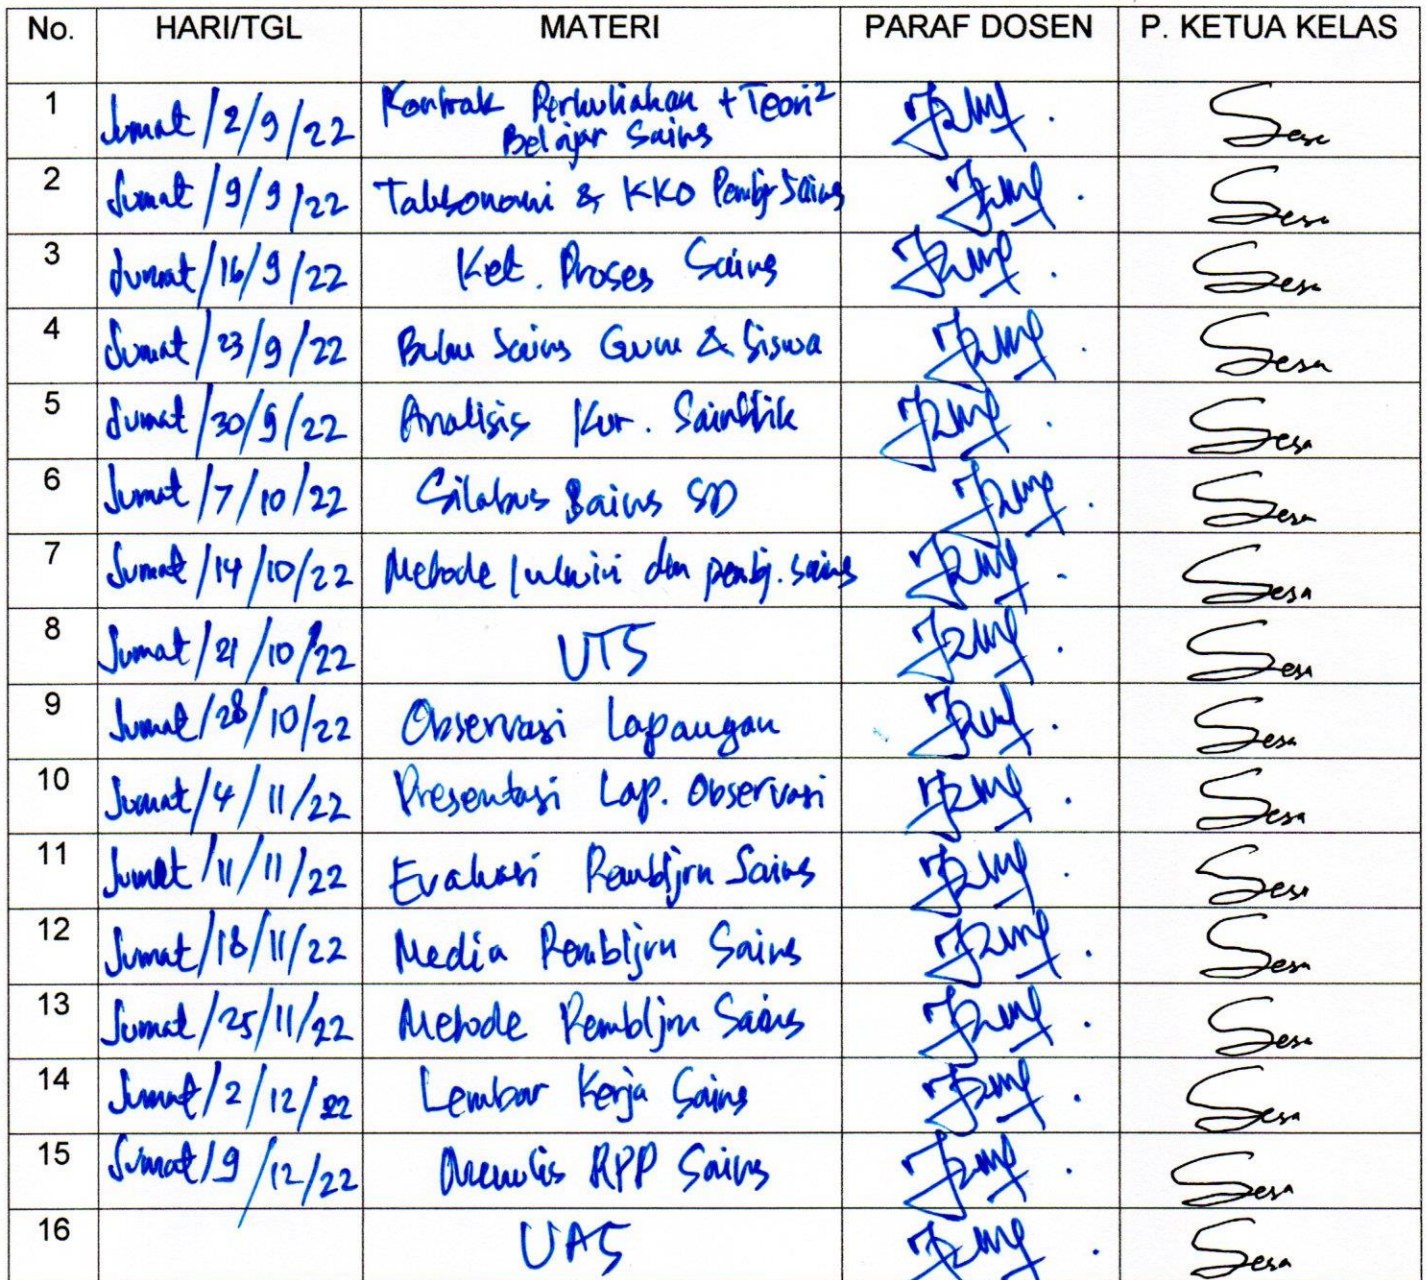 No. HARI/TGL MATERI PARAF DOSEN P. KETUA KELAS
1 Jumat/2/9/22 Kontrak Perkuliahan + Teori²
Belajar Sains Sesa
2 Jumat/9/9/22 Taksonomi & KKO Pembjr Sains Sesa
3 Jumat/16/9/22 Ket. Proses Sains Sesa
4 Jumat/23/9/22 Buku Sains Guru & Siswa Sesa
5 Jumat/30/9/22 Analisis Kur. Saintifik Sesa
6 Jumat/7/10/22 Silabus Sains SD Sesa
7 Jumat/14/10/22 Metode Inkuiri dlm pembj. sains Sesa
8 Jumat/21/10/22 UTS Sesa
9 Jumat/28/10/22 Observasi Lapangan Sesa
10 Jumat/4/11/22 Presentasi Lap. Observasi Sesa
11 Jumat/11/11/22 Evaluasi Pembljrn Sains Sesa
12 Jumat/18/11/22 Media Pembljrn Sains Sesa
13 Jumat/25/11/22 Metode Pembljrn Sains Sesa
14 Jumat/2/12/22 Lembar Kerja Sains Sesa
15 Jumat/9/12/22 Menulis RPP Sains Sesa
16 UAS Sesa